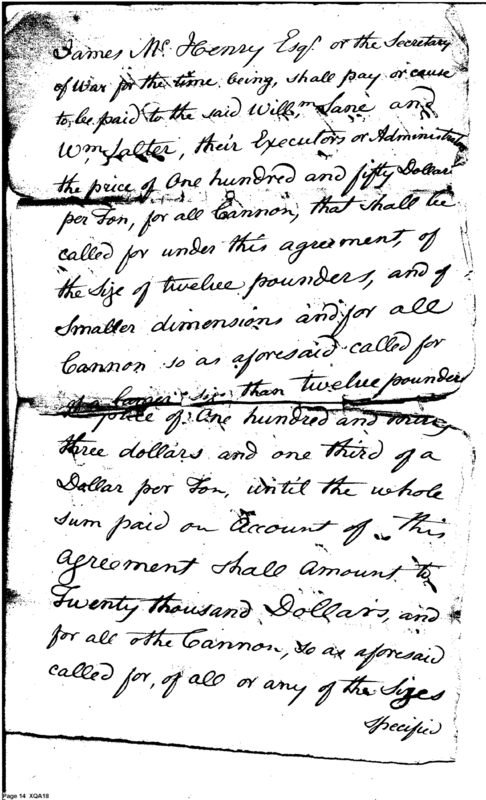 James Mc. Henry Esqr. or the Secretary
of War for the time being, shall pay or cause
to be paid to the said Willm. Lane and
Wm Salter, their Executors or Administrators
the price of One hundred and fifty Dollars
per Ton, for all Cannon, that shall be
called for under this agreement, of
the Size of twelve pounders, and of
Smaller dimensions and for all
Cannon so as aforesaid called for
of a larger size than twelve pounders
price of One hundred and thirty
three dollars and one third of a
Dollar per Ton, until the whole
sum paid on account of this
agreement shall amount to
Twenty thousand Dollars, and
for all othe Cannon, so as aforesaid
called for, of all or any of the Sizes
specified
Page 14 XQA18